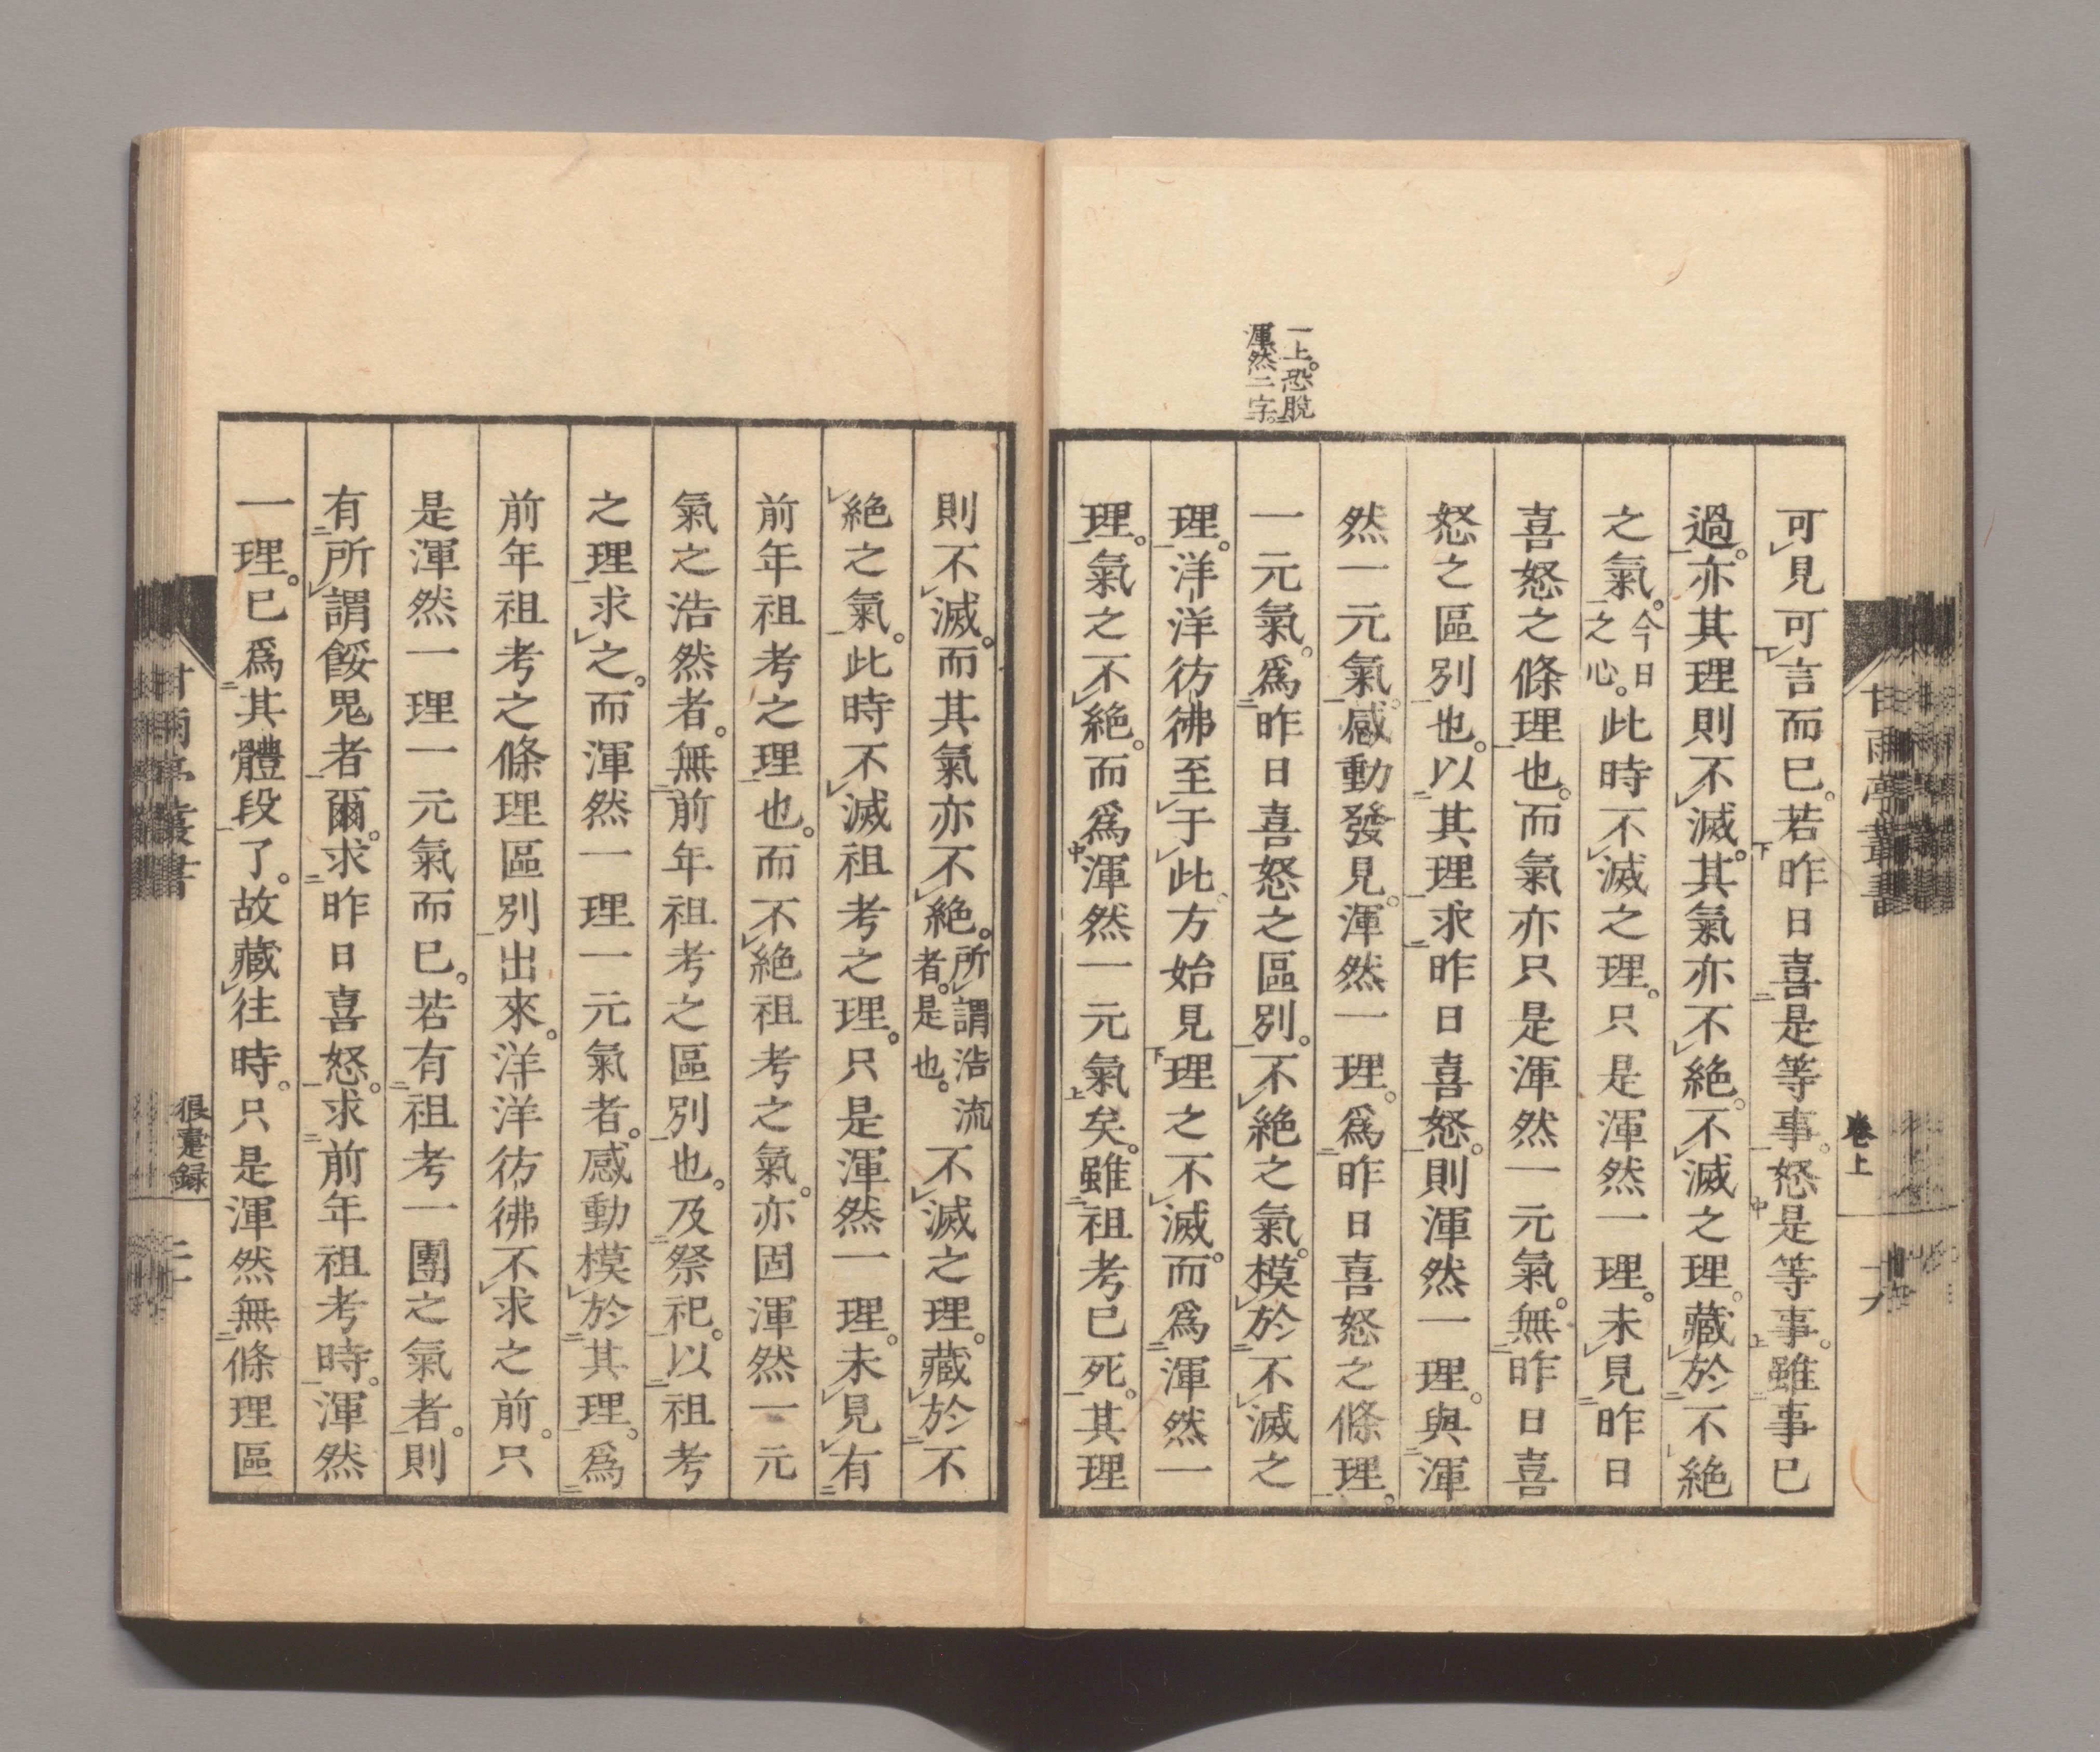 一上。恐脫
渾然二字。
可見可言而已。若昨日喜是等事。怒是等事。雖事已
過。亦其理則不滅。其氣亦不絕。不滅之理。藏於不絕
之氣。今日之心。此時不滅之理。只是渾然一理。未見昨日
喜怒之條理也。而氣亦只是渾然一元氣。無昨日喜
怒之區別也。以其理求昨日喜怒。則渾然一理。與渾
然一元氣。感動發見。渾然一理。爲昨日喜怒之條理。
一元氣。爲昨日喜怒之區別。不絕之氣。模於不滅之
理。洋洋彷彿至于此。方始見理之不滅。而爲渾然一
理。氣之不絕。而爲渾然一元氣矣。雖祖考已死。其理
甘雨亭叢書
卷上
則不滅。而其氣亦不絕。所謂浩流者。是也。不滅之理。藏於不
絕之氣。此時不滅祖考之理。只是渾然一理。未見有
前年祖考之理也。而不絕祖考之氣。亦固渾然一元
氣之浩然者。無前年祖考之區別也。及祭祀。以祖考
之理求之。而渾然一理一元氣者。感動模於其理。爲
前年祖考之條理區別出來。洋洋彷彿不求之前。只
是渾然一理一元氣而已。若有祖考一團之氣者。則
有所謂餒鬼者爾。求昨日喜怒。求前年祖考時。渾然
一理。已爲其體段了。故藏往時。只是渾然無條理區
甘雨亭叢書
狼疐録